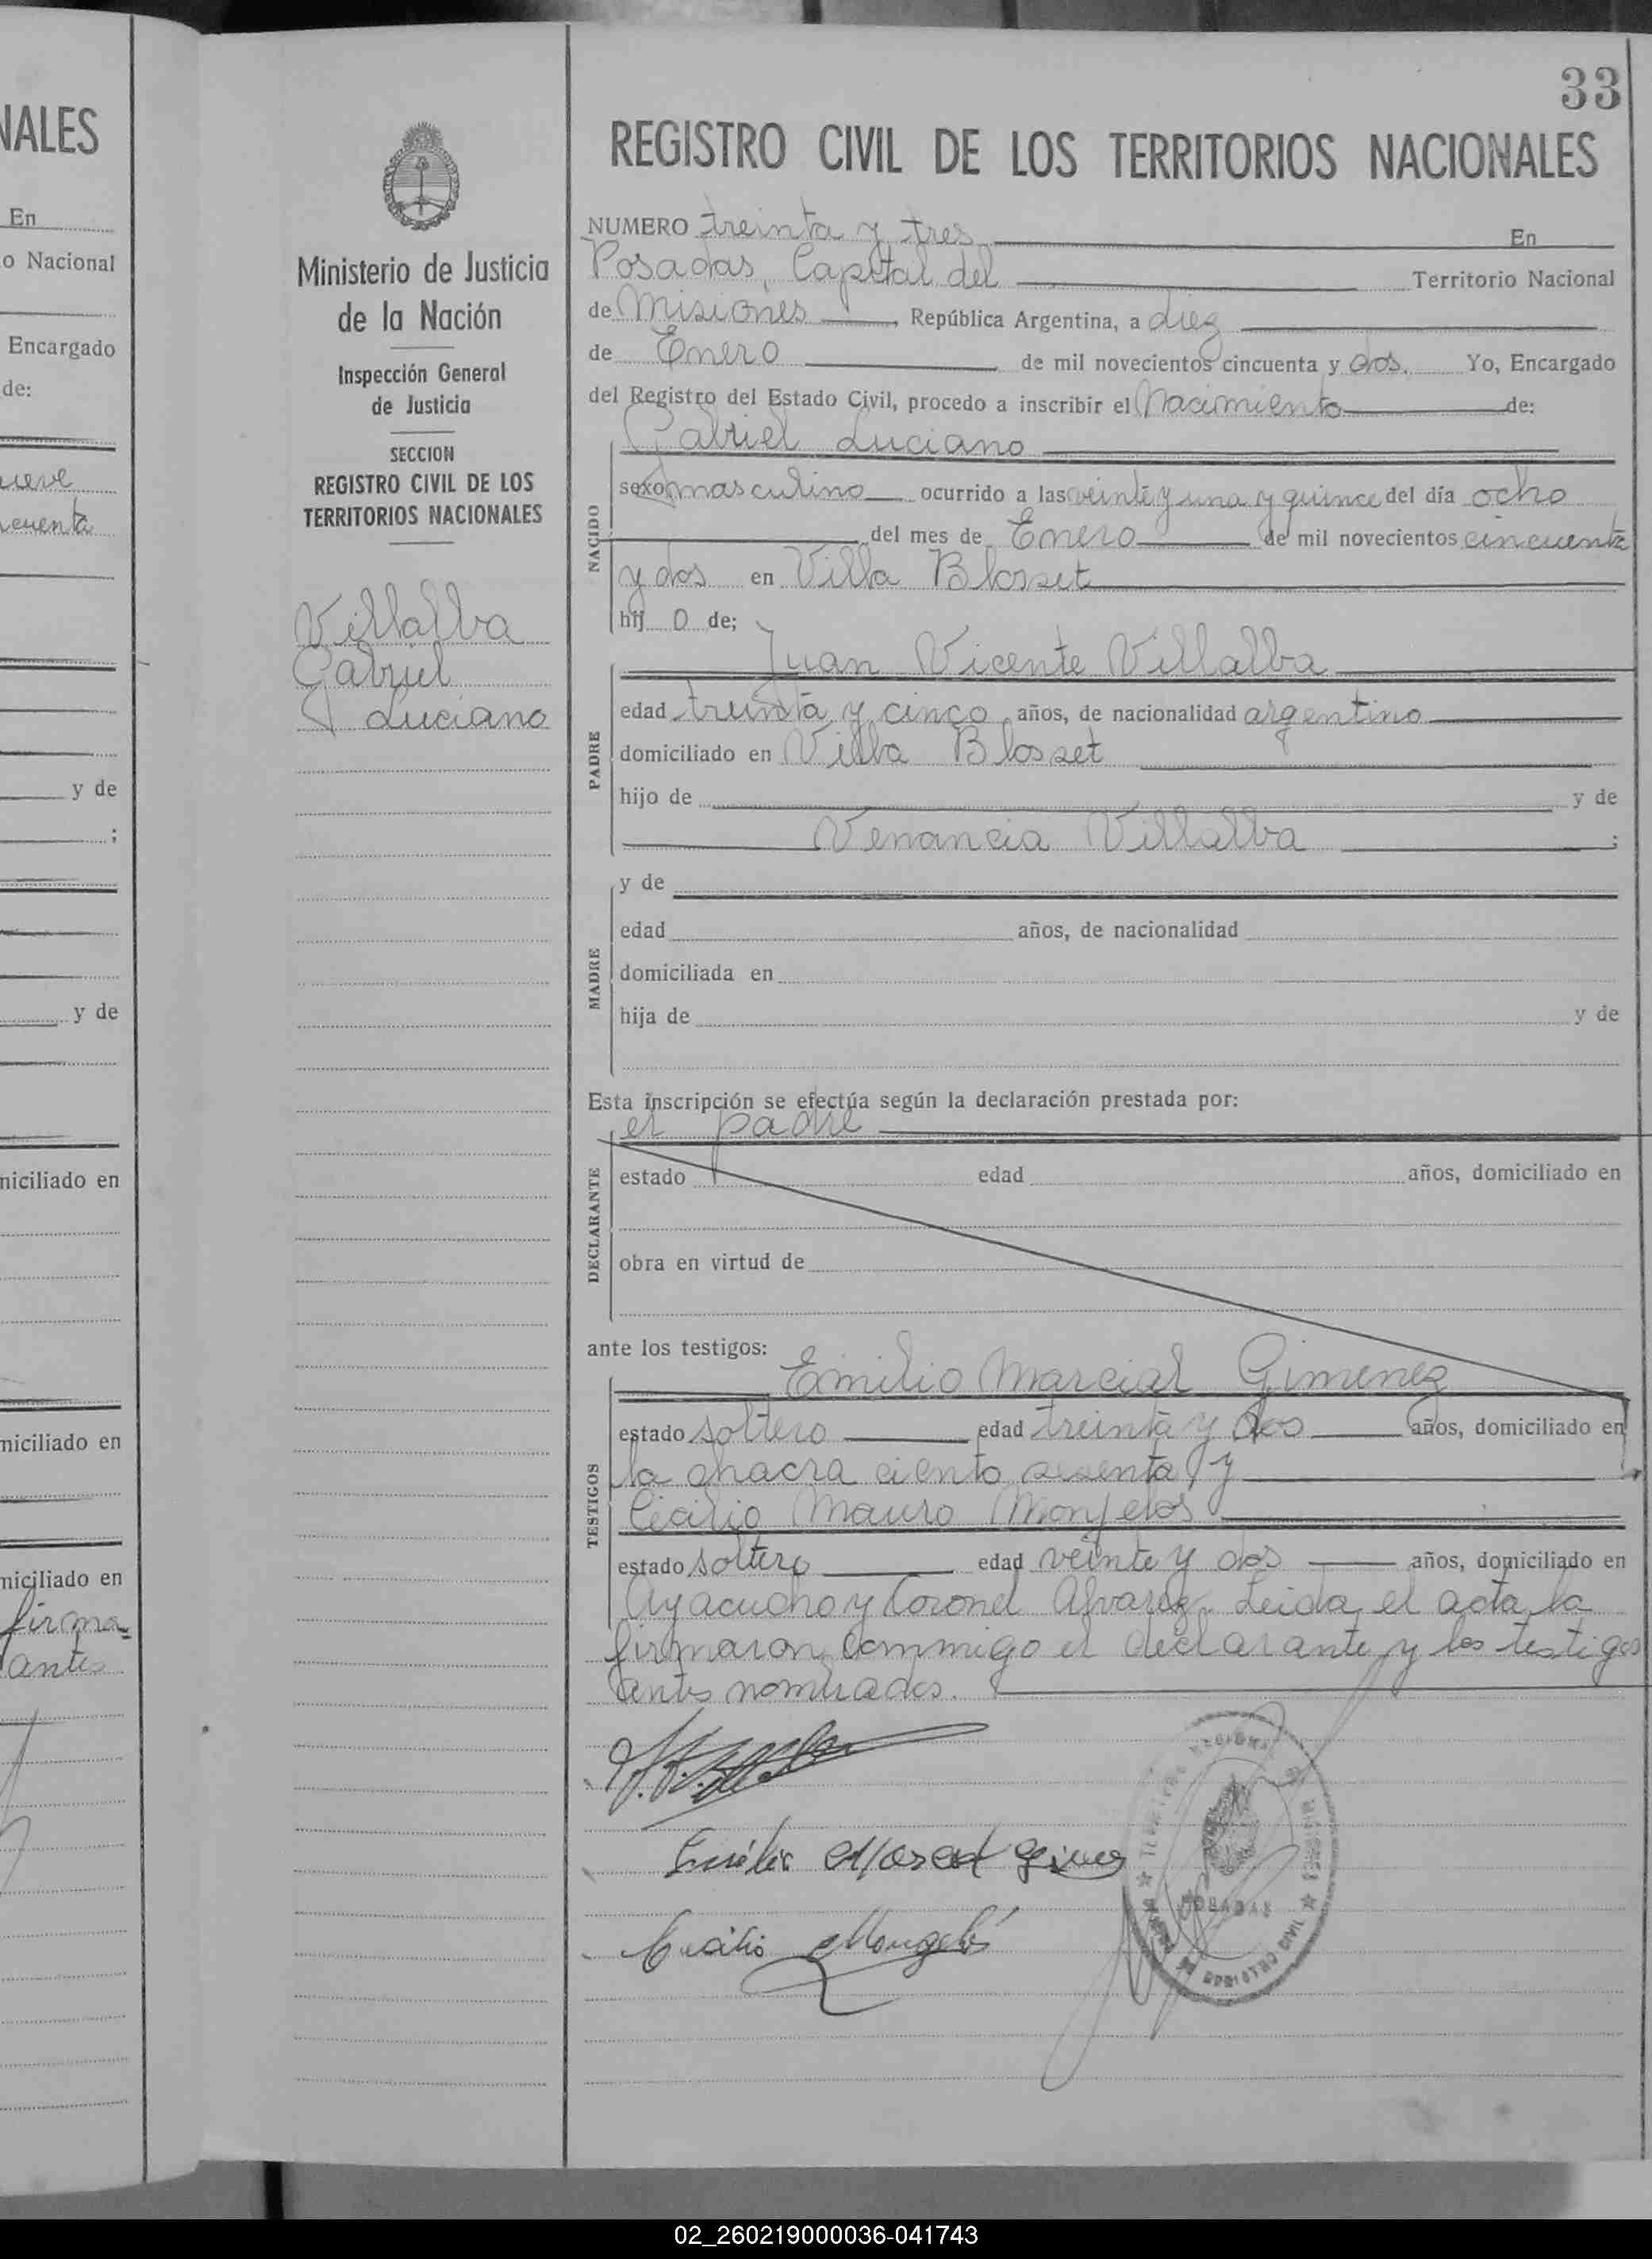 NALES
En
o Nacional
Encargado
de:
ueve
cuenta
y de
;
y de
niciliado en
niciliado en
niciliado en
firma=
antes
Ministerio de Justicia
de la Nación
Inspección General
de Justicia
SECCION
REGISTRO CIVIL DE LOS
TERRITORIOS NACIONALES
Villalba
Gabriel
Luciano
33
REGISTRO CIVIL DE LOS TERRITORIOS NACIONALES
NUMERO treinta y tres En
Posadas, Capital del Territorio Nacional
de Misiones, República Argentina, a diez
de Enero de mil novecientos cincuenta y dos. Yo, Encargado
del Registro del Estado Civil, procedo a inscribir el Nacimiento de:
Gabriel Luciano
NACIDO
sexo masculino ocurrido a las veinte y una y quince del día ocho
del mes de Enero de mil novecientos cincuenta
y dos en Villa Blosset
hij o de;
Juan Vicente Villalba
PADRE
edad treinta y cinco años, de nacionalidad argentino
domiciliado en Villa Blosset
hijo de y de
Venancia Villalba ;
MADRE
y de
edad años, de nacionalidad
domiciliada en
hija de y de
Esta inscripción se efectúa según la declaración prestada por:
el padre
DECLARANTE
estado edad años, domiciliado en
obra en virtud de
ante los testigos:
Emilio Marcial Gimenez
TESTIGOS
estado soltero edad treinta y dos años, domiciliado en
la chacra ciento sesenta y
Cecilio Mauro Monjelos
estado soltero edad veinte y dos años, domiciliado en
Ayacucho y Coronel Alvarez. Leida el acta la
firmaron conmigo el declarante y los testigos
antes nombrados.
Emilio Marcial Gimenez
Cecilio Mongelós
POSADAS
REGISTRO CIVIL
02_260219000036-041743